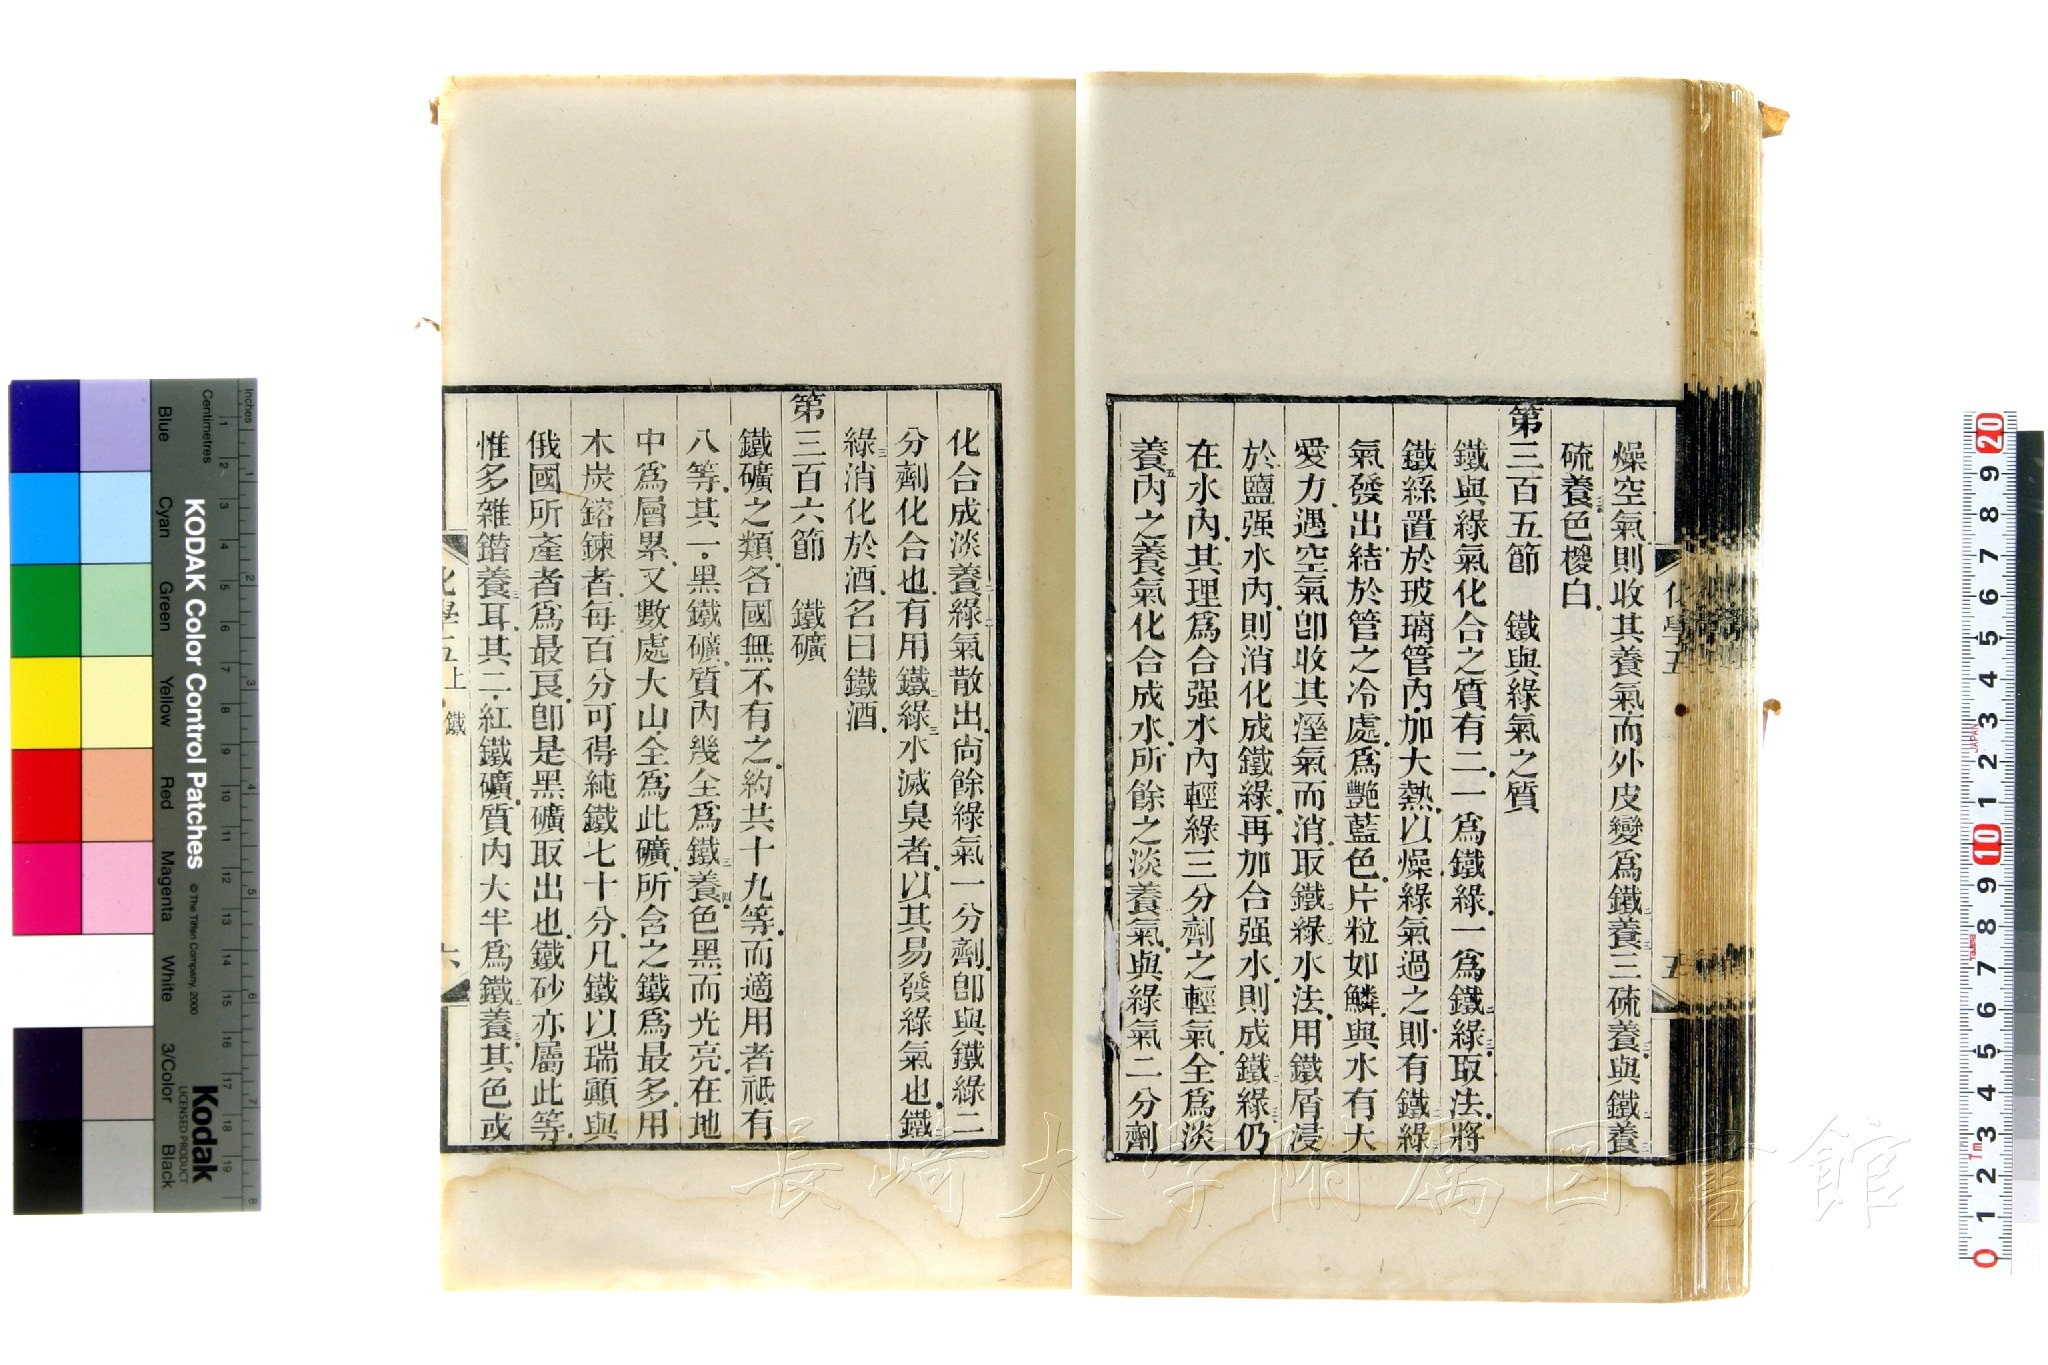 燥空氣則收其養氣而外皮變爲鐵養三硫養與鐵養
硫養色㯶白
第三百五節　鐵與綠氣之質
鐵與綠氣化合之質有二一爲鐵綠一爲鐵綠取法將
鐵絲置於玻璃管內加大熱以燥綠氣過之則有鐵綠
氣發出結於管之冷處爲艷藍色片粒如鱗與水有大
愛力遇空氣卽收其溼氣而消取鐵綠水法用鐵屑浸
於鹽强水內則消化成鐵綠再加合强水則成鐵綠仍
在水內其理爲合强水內輕綠三分劑之輕氣全爲淡
養五內之養氣化合成水所餘之淡養氣與綠氣二分劑
化學五
五
化合成淡養綠氣散出尙餘綠氣一分劑卽與鐵綠二
分劑化合也有用鐵綠水滅臭者以其易發綠氣也鐵
綠消化於酒名曰鐵酒
第三百六節　鐵礦
鐵礦之類各國無不有之約共十九等而適用者祇有
八等其一黑鐵礦質內幾全爲鐵三養四色黑而光亮在地
中爲層累又數處大山全爲此礦所含之鐵爲最多用
木炭鎔鍊者每百分可得純鐵七十分凡鐵以瑞顚與
俄國所產者爲最良卽是黑礦取出也鐵砂亦屬此等
惟多雜鐕養耳其二紅鐵礦質內大半爲鐵二養三其色或
化學五上　鐵
六
長崎大学附属図書館
KODAK Color Control Patches
© The Tiffen Company, 2000
Kodak
LICENSED PRODUCT
Inches
Centimetres
Blue
Cyan
Green
Yellow
Red
Magenta
White
3/Color
Black
JAPAN